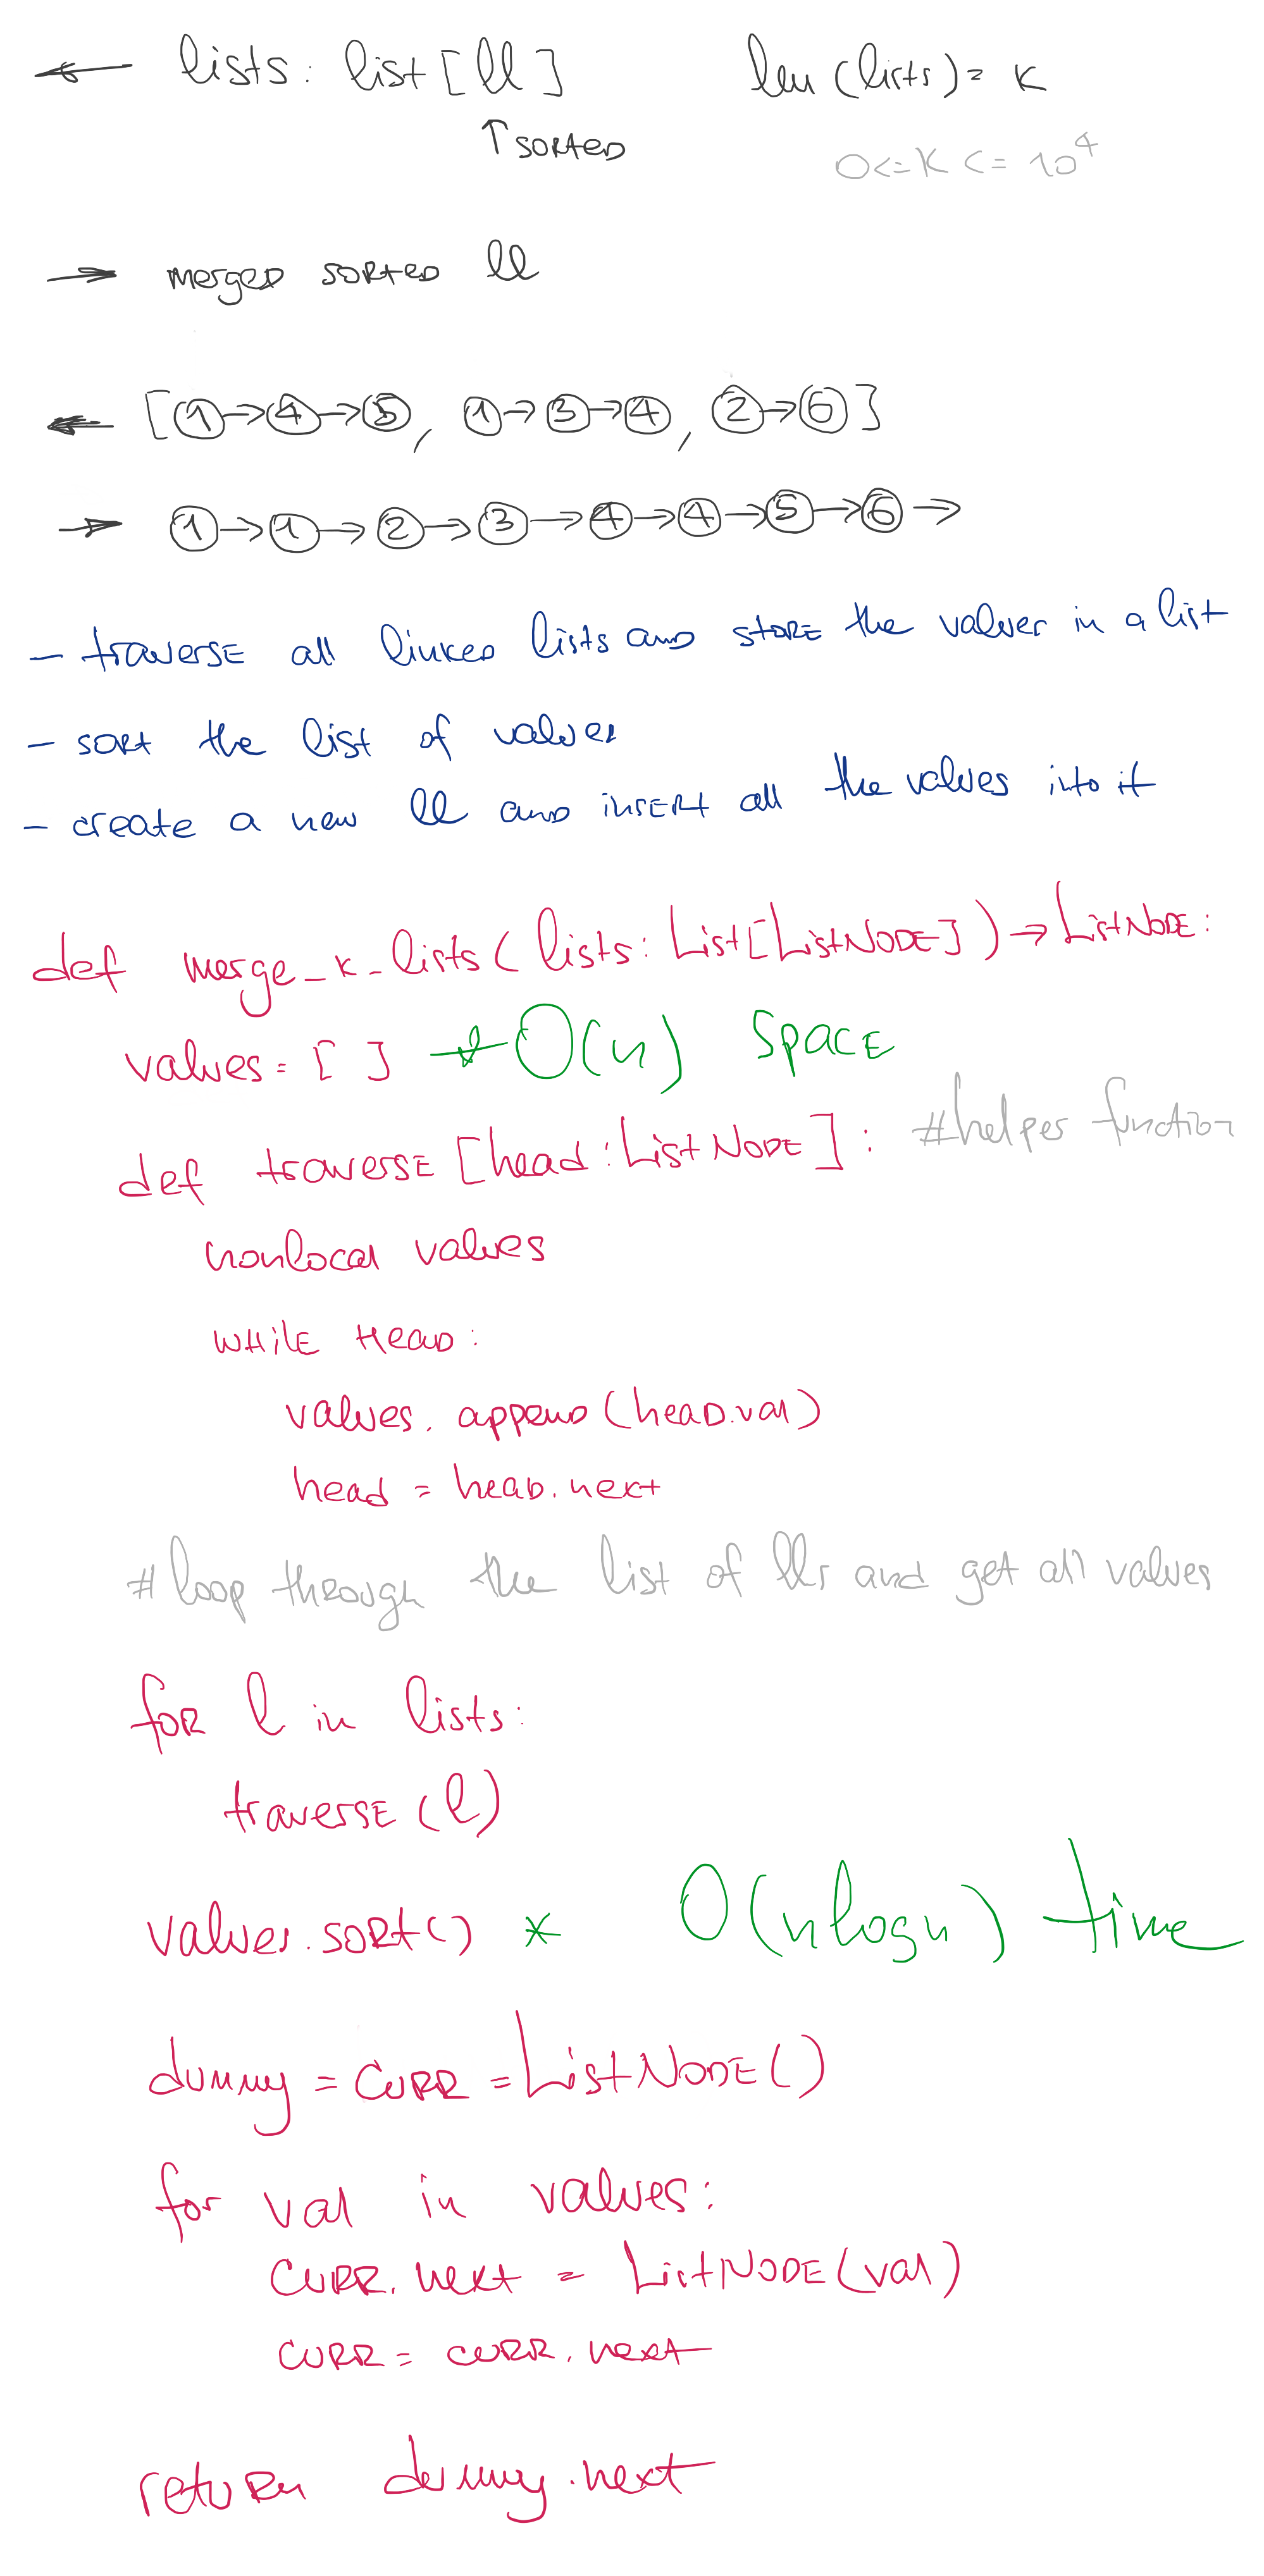 ← lists: list[ll] len(lists)= K
↑ sorted 0<=K<= 10^4
→ merged sorted ll
← [1→4→5, 1→3→4, 2→6]
→ 1→1→2→3→4→4→5→6→
- traverse all linked lists and store the values in a list
- sort the list of values
- create a new ll and insert all the values into it
def merge_k_lists(lists: List[ListNode])→ListNode:
values=[] * O(n) space
def traverse[head:ListNode]: #helper function
nonlocal values
while head:
values.append(head.val)
head = head.next
#loop through the list of lls and get all values
for l in lists:
traverse(l)
values.sort() * O(nlogn) time
dummy = curr = ListNode()
for val in values:
curr.next = ListNode(val)
curr = curr.next
return dummy.next